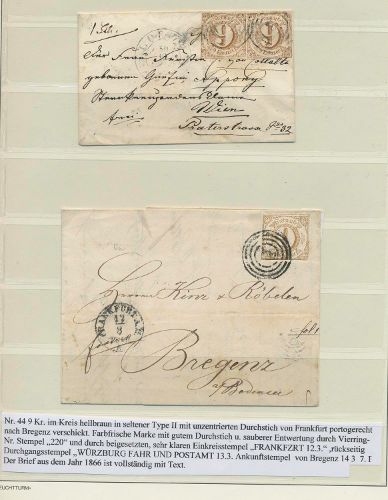 1. Feb.
9 9
Der Frau Fürstin
gebornen Gräfin Apponyi
Sternkreuzordens Dame
Wien
Praterstrasse No 32
frei
FRANKFURT A.M.
12
3
Herren Kinz u Röbelen
Bregenz
a/Bodensee
Nr. 44 9 Kr. im Kreis hellbraun in seltener Type II mit unzentrierten Durchstich von Frankfurt portogerecht
nach Bregenz verschickt. Farbfrische Marke mit gutem Durchstich u. sauberer Entwertung durch Vierring-
Nr. Stempel „220“ und durch beigesetzten, sehr klaren Einkreisstempel „FRANKFZRT 12.3.“ ,rückseitig
Durchgangsstempel „WÜRZBURG FAHR UND POSTAMT 13.3. Ankunftstempel von Bregenz 14 3 7. F
Der Brief aus dem Jahr 1866 ist vollständig mit Text.
LEUCHTTURM-